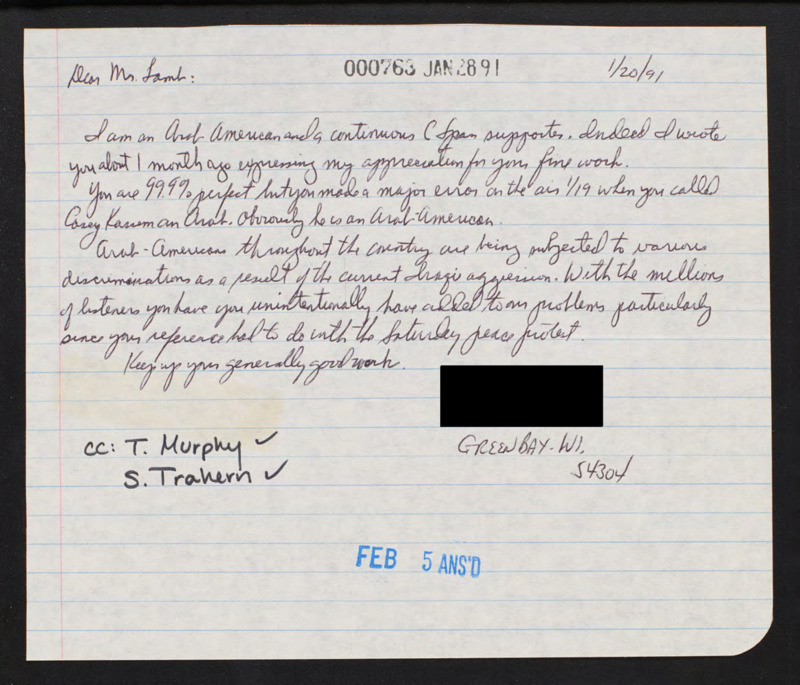 Dear Mr. Lamb:
000763 JAN 28 91
1/20/91
I am an Arab-American and a continuous C Span supporter. Indeed I wrote
you about 1 month ago expressing my appreciation for your fine work.
You are 99.9% perfect but you made a major error on the air 1/19 when you called
Casey Kasem an Arab. Obviously he is an Arab-American.
Arab-Americans throughout the country are being subjected to various
discriminations as a result of the current Iraqi aggression. With the millions
of listeners you have you unintentionally have added to our problems particularly
since your reference had to do with the Saturday peace protest.
Keep up your generally good work.
cc: T. Murphy ✓
S. Trahern ✓
GREEN BAY - WI.
54304
FEB 5 ANS'D